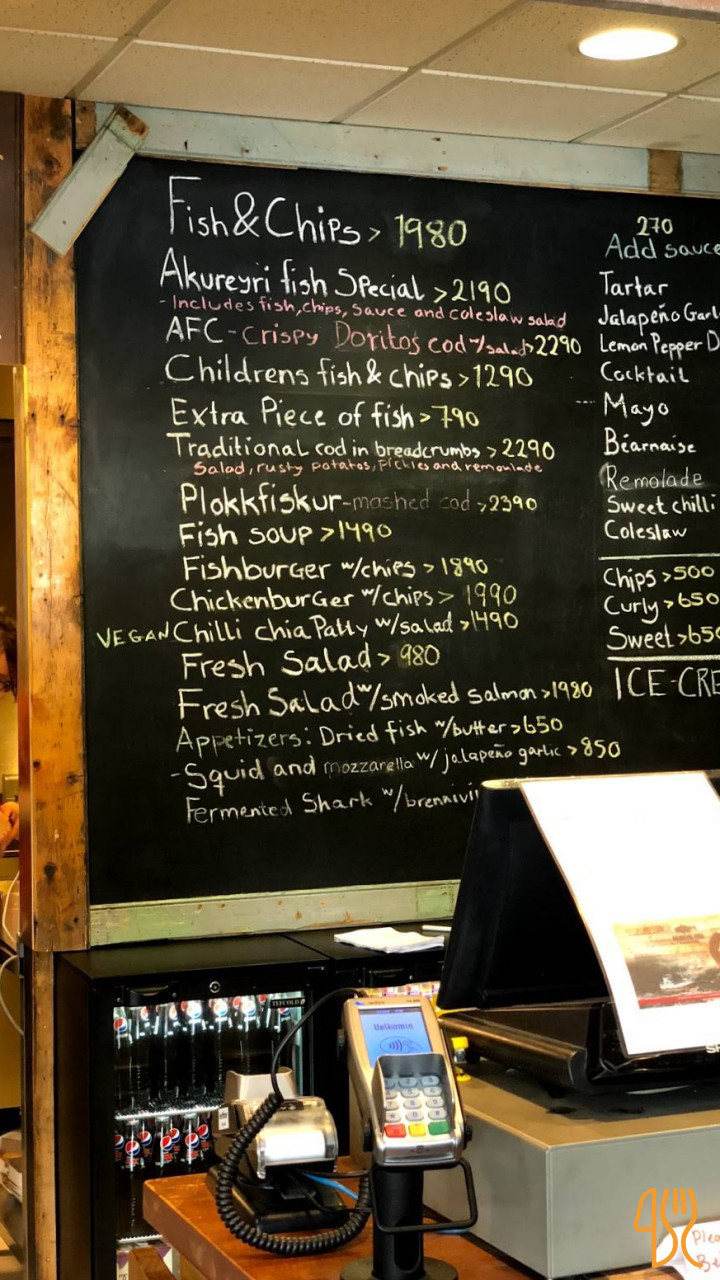 Fish & Chips > 1980
Akureyri fish Special > 2190
- Includes fish, chips, sauce and coleslaw salad
AFC - Crispy Doritos cod w/salad > 2290
Childrens fish & chips > 1290
Extra Piece of fish > 790
Traditional cod in breadcrumbs > 2290
Salad, rusty potatos, pickles and remoulade
Plokkfiskur - mashed cod > 2390
Fish soup > 1490
Fishburger w/chips > 1890
Chickenburger w/chips > 1990
VEGAN Chilli chia Patty w/salad > 1490
Fresh Salad > 980
Fresh Salad w/smoked salmon > 1980
Appetizers: Dried fish w/butter > 650
- Squid and mozzarella w/jalapeño garlic > 850
Fermented Shark w/
270
Add sauce
Tartar
Jalapeño
Lemon Pepper
Cocktail
Mayo
Béarnaise
Remolade
Sweet chilli
Coleslaw
Chips > 500
Curly > 650
Sweet > 650
ICE-CRE
TEFCOLD
Velkomin